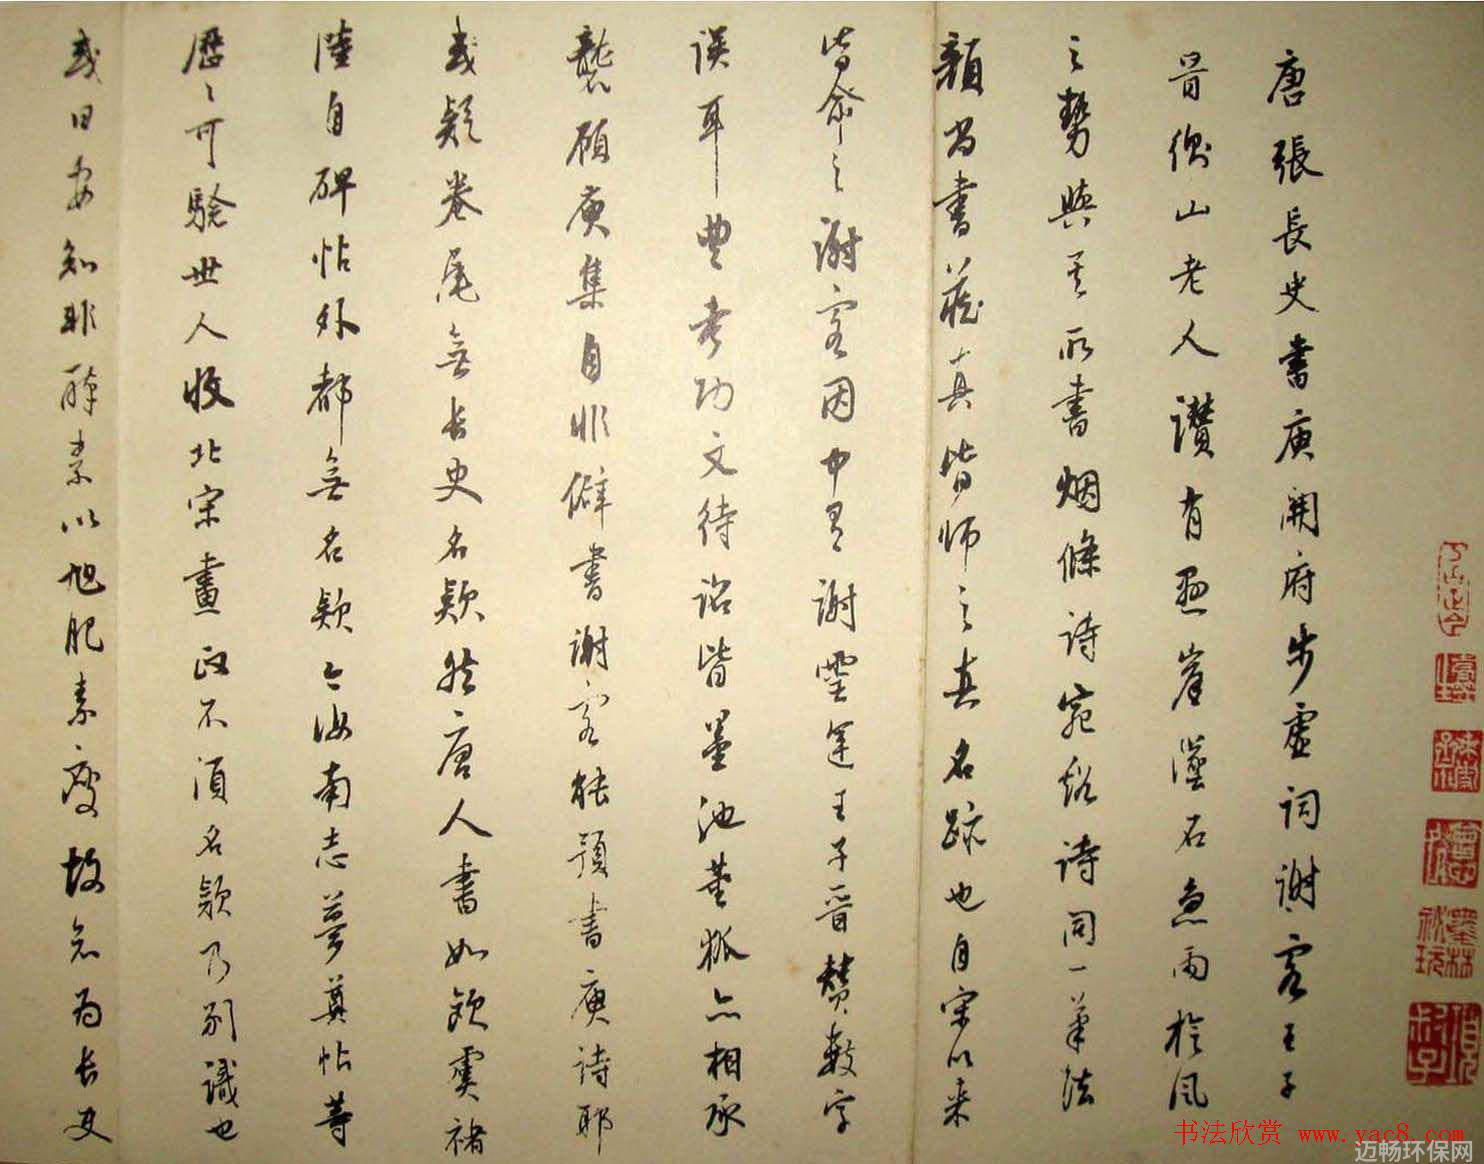 唐張長史書庾開府步虛詞謝客王子
晉衡山老人讚有懸崖墜石急雨旋風
之勢與其所書烟條詩宛谿詩同一筆法
顏尚書藏真皆師之真名跡也自宋以來
皆命之謝客因中有謝靈運王子晉贊數字
誤耳豐考功文待詔皆墨池董狐亦相承
襲顧庾集自非僻書謝客能預書庾詩耶
或疑卷尾無長史名款然唐人書如歐虞褚
陸自碑帖外都無名款今汝南志夢奠帖等
歷歷可驗世人收北宋畫政不須名款乃別識也
或曰安知非醉素以旭肥素瘦故知為長史
书法欣赏 www.yac8.com
迈畅环保网